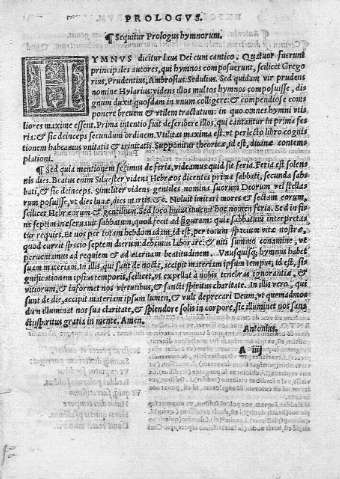 PROLOGVS.
¶ Sequitur Prologus hymnorum.
HYMNVS dicitur laus Dei cum cantico. Quatuor fuerunt
principales autores, qui hymnos composuerunt, scilicet Grego
rius, Prudentius, Ambrosius, Sedulius. Sed quidam vir prudens
nomine Hylarius, videns illos multos hymnos composuisse, di
gnum duxit quosdam in vnum colligere: & compendiose com
ponere breuem & vtilem tractatum: in quo omnes hymni vti
liores maxime essent. Prima intentio fuit describere illos, qui cantantur in primis fe-
& sic deinceps secundum ordinem. Vtilitas maxima est, vt perlecto libro cognitionem
habeamus vnitatis & trinitatis. Supponitur theoricæ, id est, diuinæ contem
plationi.
¶ Sed quia mentionem fecimus de feria, videamus quid sit feria. Feria est solen
nis dies. Beatus enim Siluester videns Hebræos dicentes prima sabbati, secunda sab
bati, & sic deinceps, similiter videns gentiles nomina suorum Deorum vel stella
rum posuisse, vt dies lunæ, dies martis. &c. Noluit imitari mores & sectam eorum,
scilicet Hebræorum & gentilium. Sed loco huius inuenit hoc nomen feria. Sed
septimam reseruauit sabbatum, quod recte ad figuram: quia sabbatum interpreta
tur requies. Et nos per totam hebdomadam, id est, per totum spacium vitæ nostræ,
quod currit spacio septem dierum debemus laborare: & niti summo conamine, vt
perueniamus ad requiem & ad æternam beatitudinem. Vnusquisque hymnus habet
suam materiam. In illis, qui sunt de nocte, accipit materiam ipsum tempus, id est,
significationem ipsius temporis, scilicet, vt expellat a nobis tenebras ignorantiæ, &
vitiorum, & informet nos virtutibus, & sancti spiritus charitate. In illis vero, qui
sunt de die, accipit materiam ipsum lumen, & vult deprecari Deum, vt quemadmo
dum illuminat nos sua charitate, & splendore solis in corpore, sic illuminet nos san
ctus spiritus gratia in mente. Amen.
Antonius.
A iiij